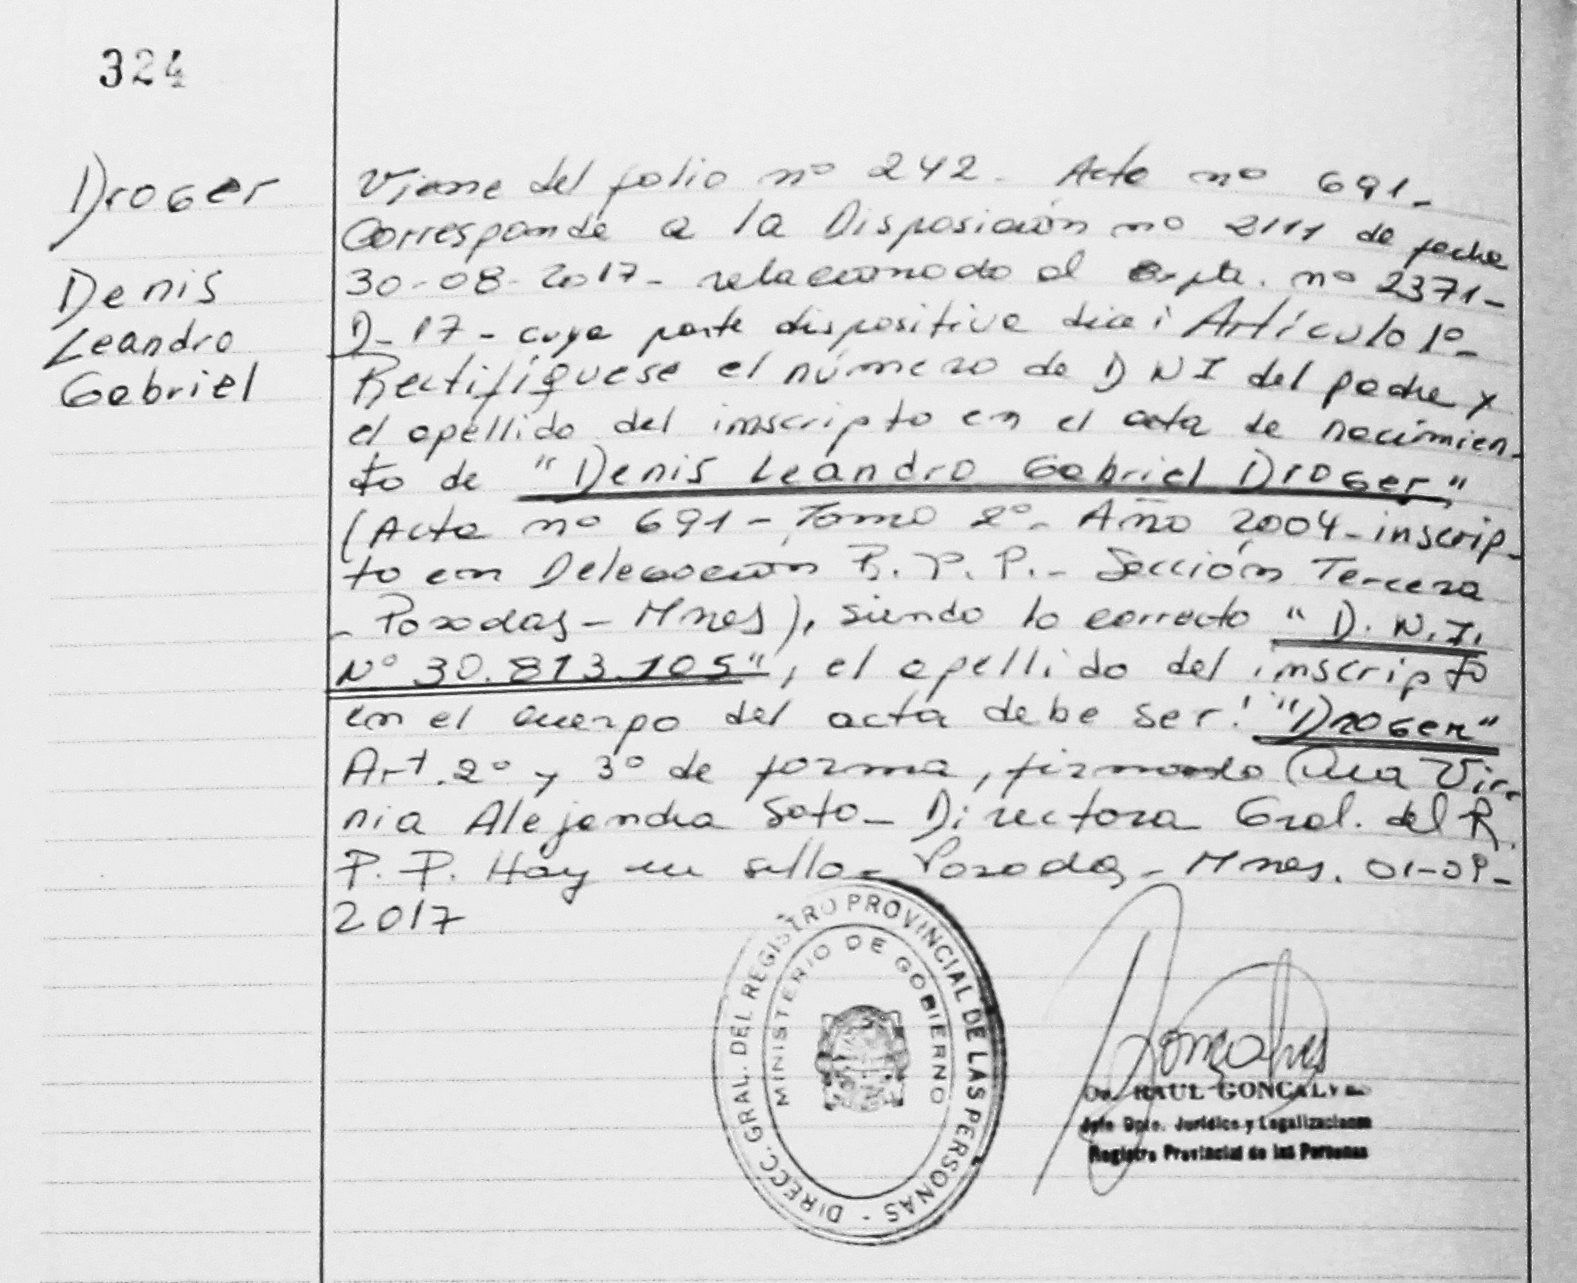 324
Droger
Denis
Leandro
Gabriel
Viene del folio nº 242. Acta nº 691-
Corresponde a la Disposición nº 2111 de fecha
30-08-2017- relacionado al Expte. nº 2371-
D-17- cuya parte dispositiva dice: Artículo 1º-
Rectifíquese el número de DNI del padre y
el apellido del inscripto en el acta de nacimien-
to de "Denis Leandro Gabriel Droger"
(Acta nº 691- Tomo 2º- Año 2004-inscrip-
to en Delegación R.P.P.- Sección Tercera
- Posadas- Mnes), siendo lo correcto "D.N.I.
Nº 30.873.105", el apellido del inscripto
en el cuerpo del acta debe ser: "Droger"
Art. 2º y 3º de forma, firmando Vir-
nia Alejandra Soto- Directora Gral. del R.
P.P. Hay un sello- Posadas- Mnes. 01-09-
2017
DIRECC. GRAL. DEL REGISTRO PROVINCIAL DE LAS PERSONAS -
MINISTERIO DE GOBIERNO
Gonçalves
Dr. RAUL GONCALVES
Jefe Dpto. Jurídico y Legalizaciones
Registro Provincial de las Personas